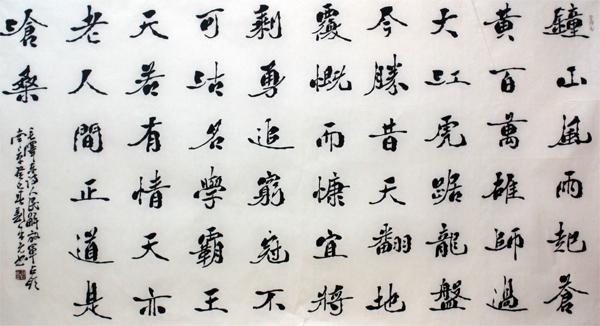 鐘山風雨起蒼
黃百萬雄師過
大江虎踞龍盤
今勝昔天翻地
覆慨而慷宜將
剩勇追窮寇不
可沽名學霸王
天若有情天亦
老人間正道是
滄桑
毛澤東詩人民解放軍占領
南京